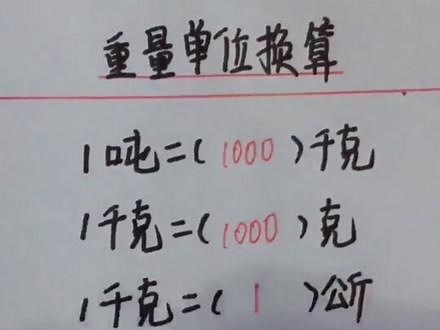 重量单位换算
1吨=(1000)千克
1千克=(1000)克
1千克=(1)公斤